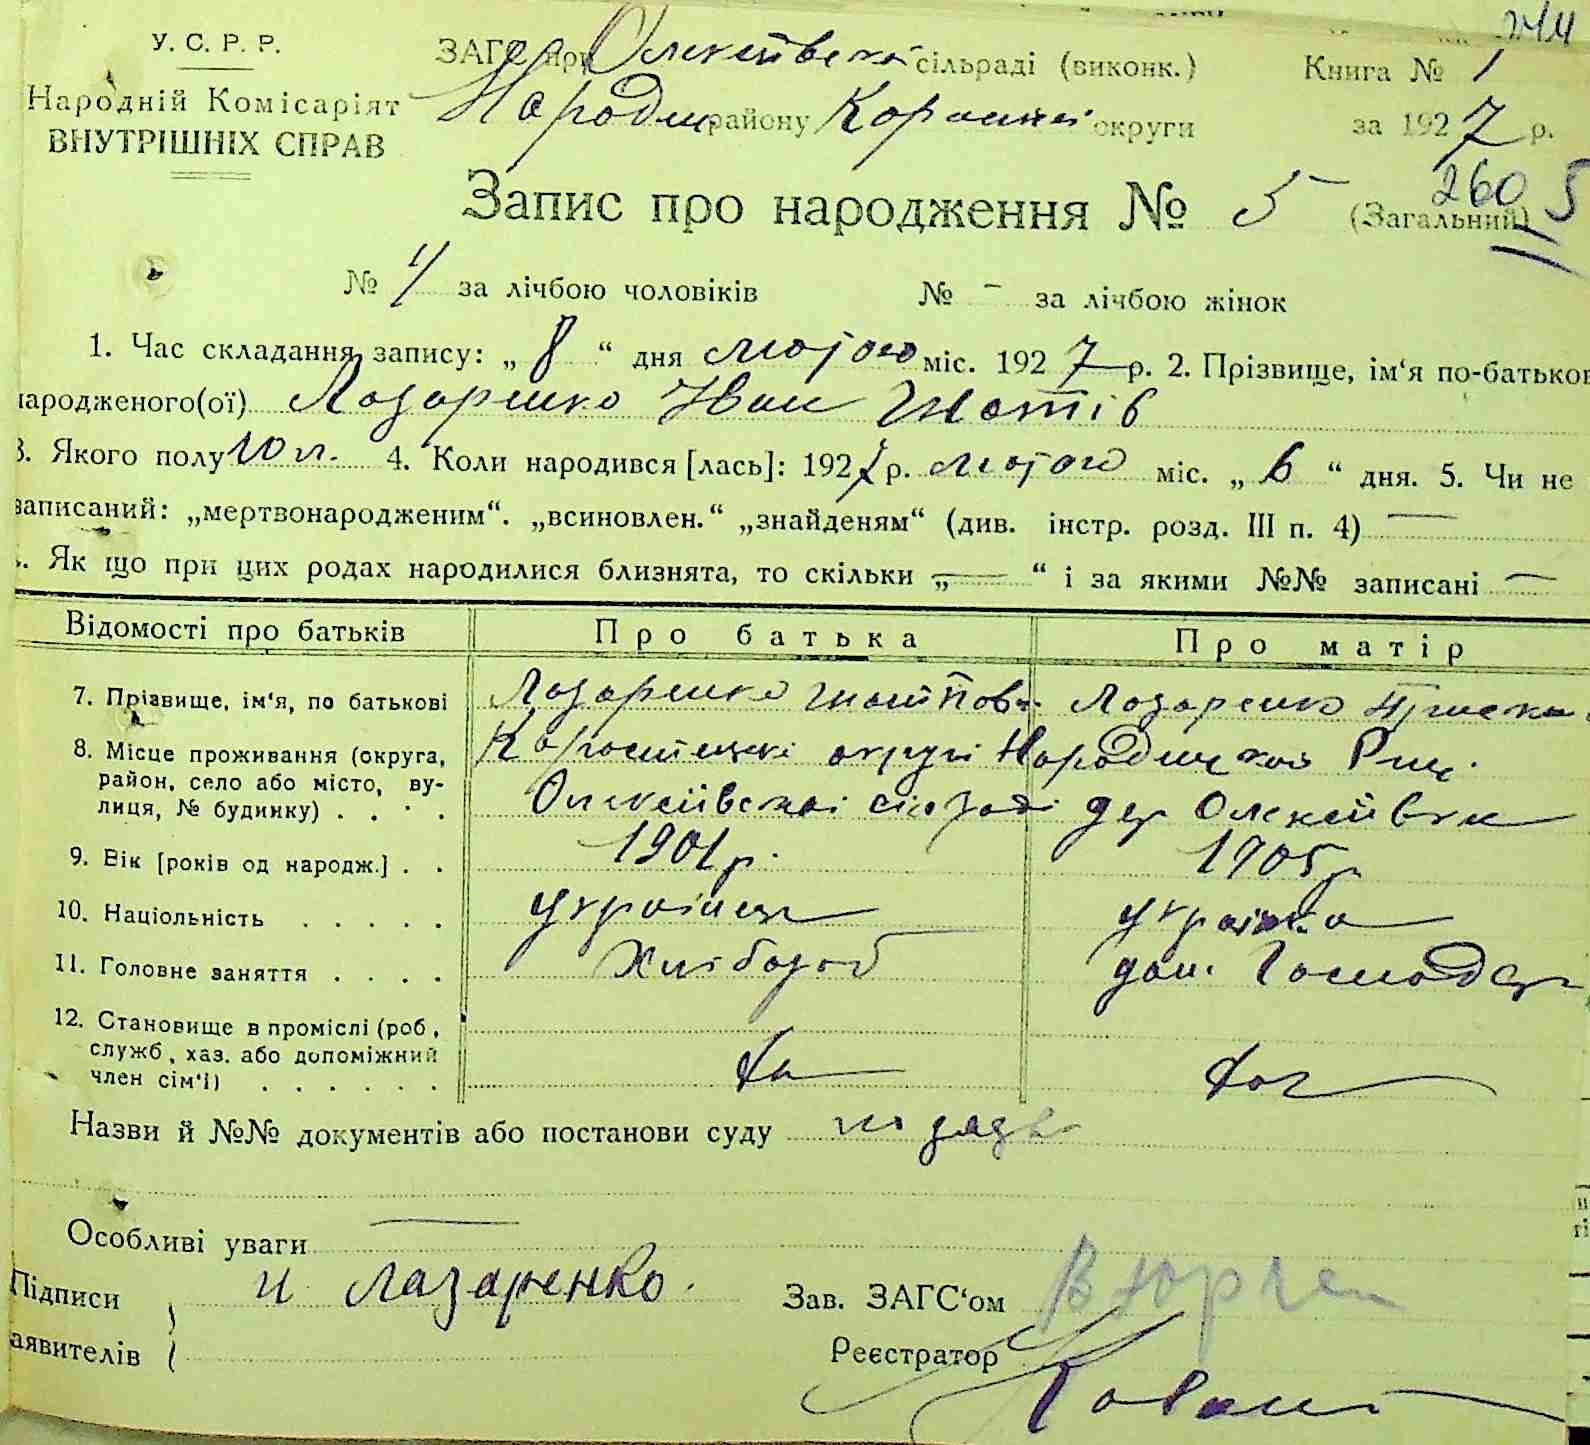 244
У. С. Р. Р. ЗАГС при Олексіївській сільраді (виконк.) Книга № 1
Народній Комісаріят Народиц району Корошкі округи за 1927 р.
ВНУТРІШНІХ СПРАВ
260 5
Запис про народження № 5 (Загальний)
№ 4 за лічбою чоловіків № - за лічбою жінок
1. Час складання запису: „ 8 “ дня лютого міс. 1927 р. 2. Прізвище, ім‘я по-батьков
народженого(ої) Лазаренко Іван
3. Якого полу чол. 4. Коли народився [лась]: 1927 р. лютого міс. „ 6 “ дня. 5. Чи не
записаний: „мертвонародженим“. „всиновлен.“ „знайденям“ (див. інстр. розд. III п. 4) —
. Як що при цих родах народилися близнята, то скільки „ — “ і за якими №№ записані —
Відомості про батьків Про батька Про матір
7. Прізвище, ім‘я, по батькові Лазаренко Лазаренко Приська
8. Місце проживання (округа, Коростенські округи Народицкой
район, село або місто, ву- Олексіївскаі сільраді дер Олексіївки
лиця, № будинку) . . . .
9. Вік [років од народж.] . . 1901 р. 1905 р
10. Націольність . . . . . українец українка
11. Головне заняття . . . . Хлібороб дом. Господар
12. Становище в промислі (роб,
служб, хаз. або допоміжний
член сім‘ї) . . . . . .
Назви й №№ документів або постанови суду
Особливі уваги —
Підписи И Лазаренко. Зав. ЗАГС‘ом
аявителів Реєстратор